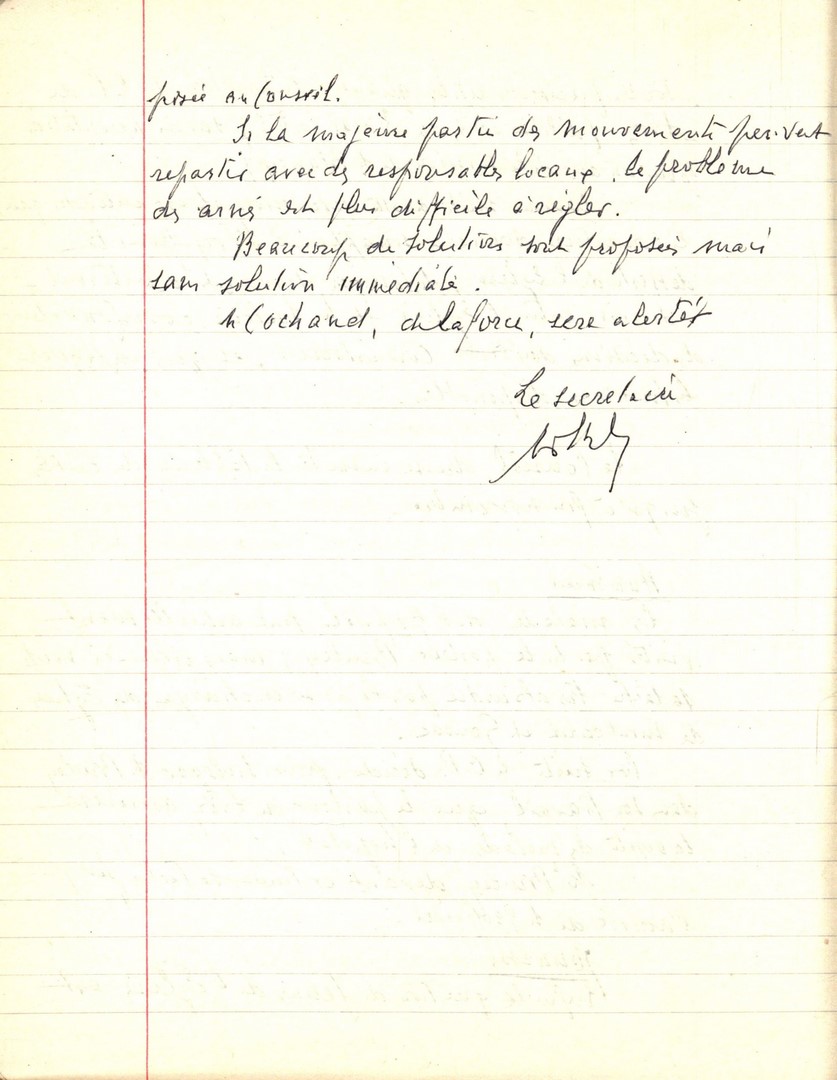 posée au Conseil.
Si la majeure partie des mouvements peuvent
repartir avec des responsables locaux, le problème
des aînés est plus difficile à régler.
Beaucoup de solutions sont proposées mais
sans solution immédiate.
M Cochand, de la force, sera alerté
Le secretaire